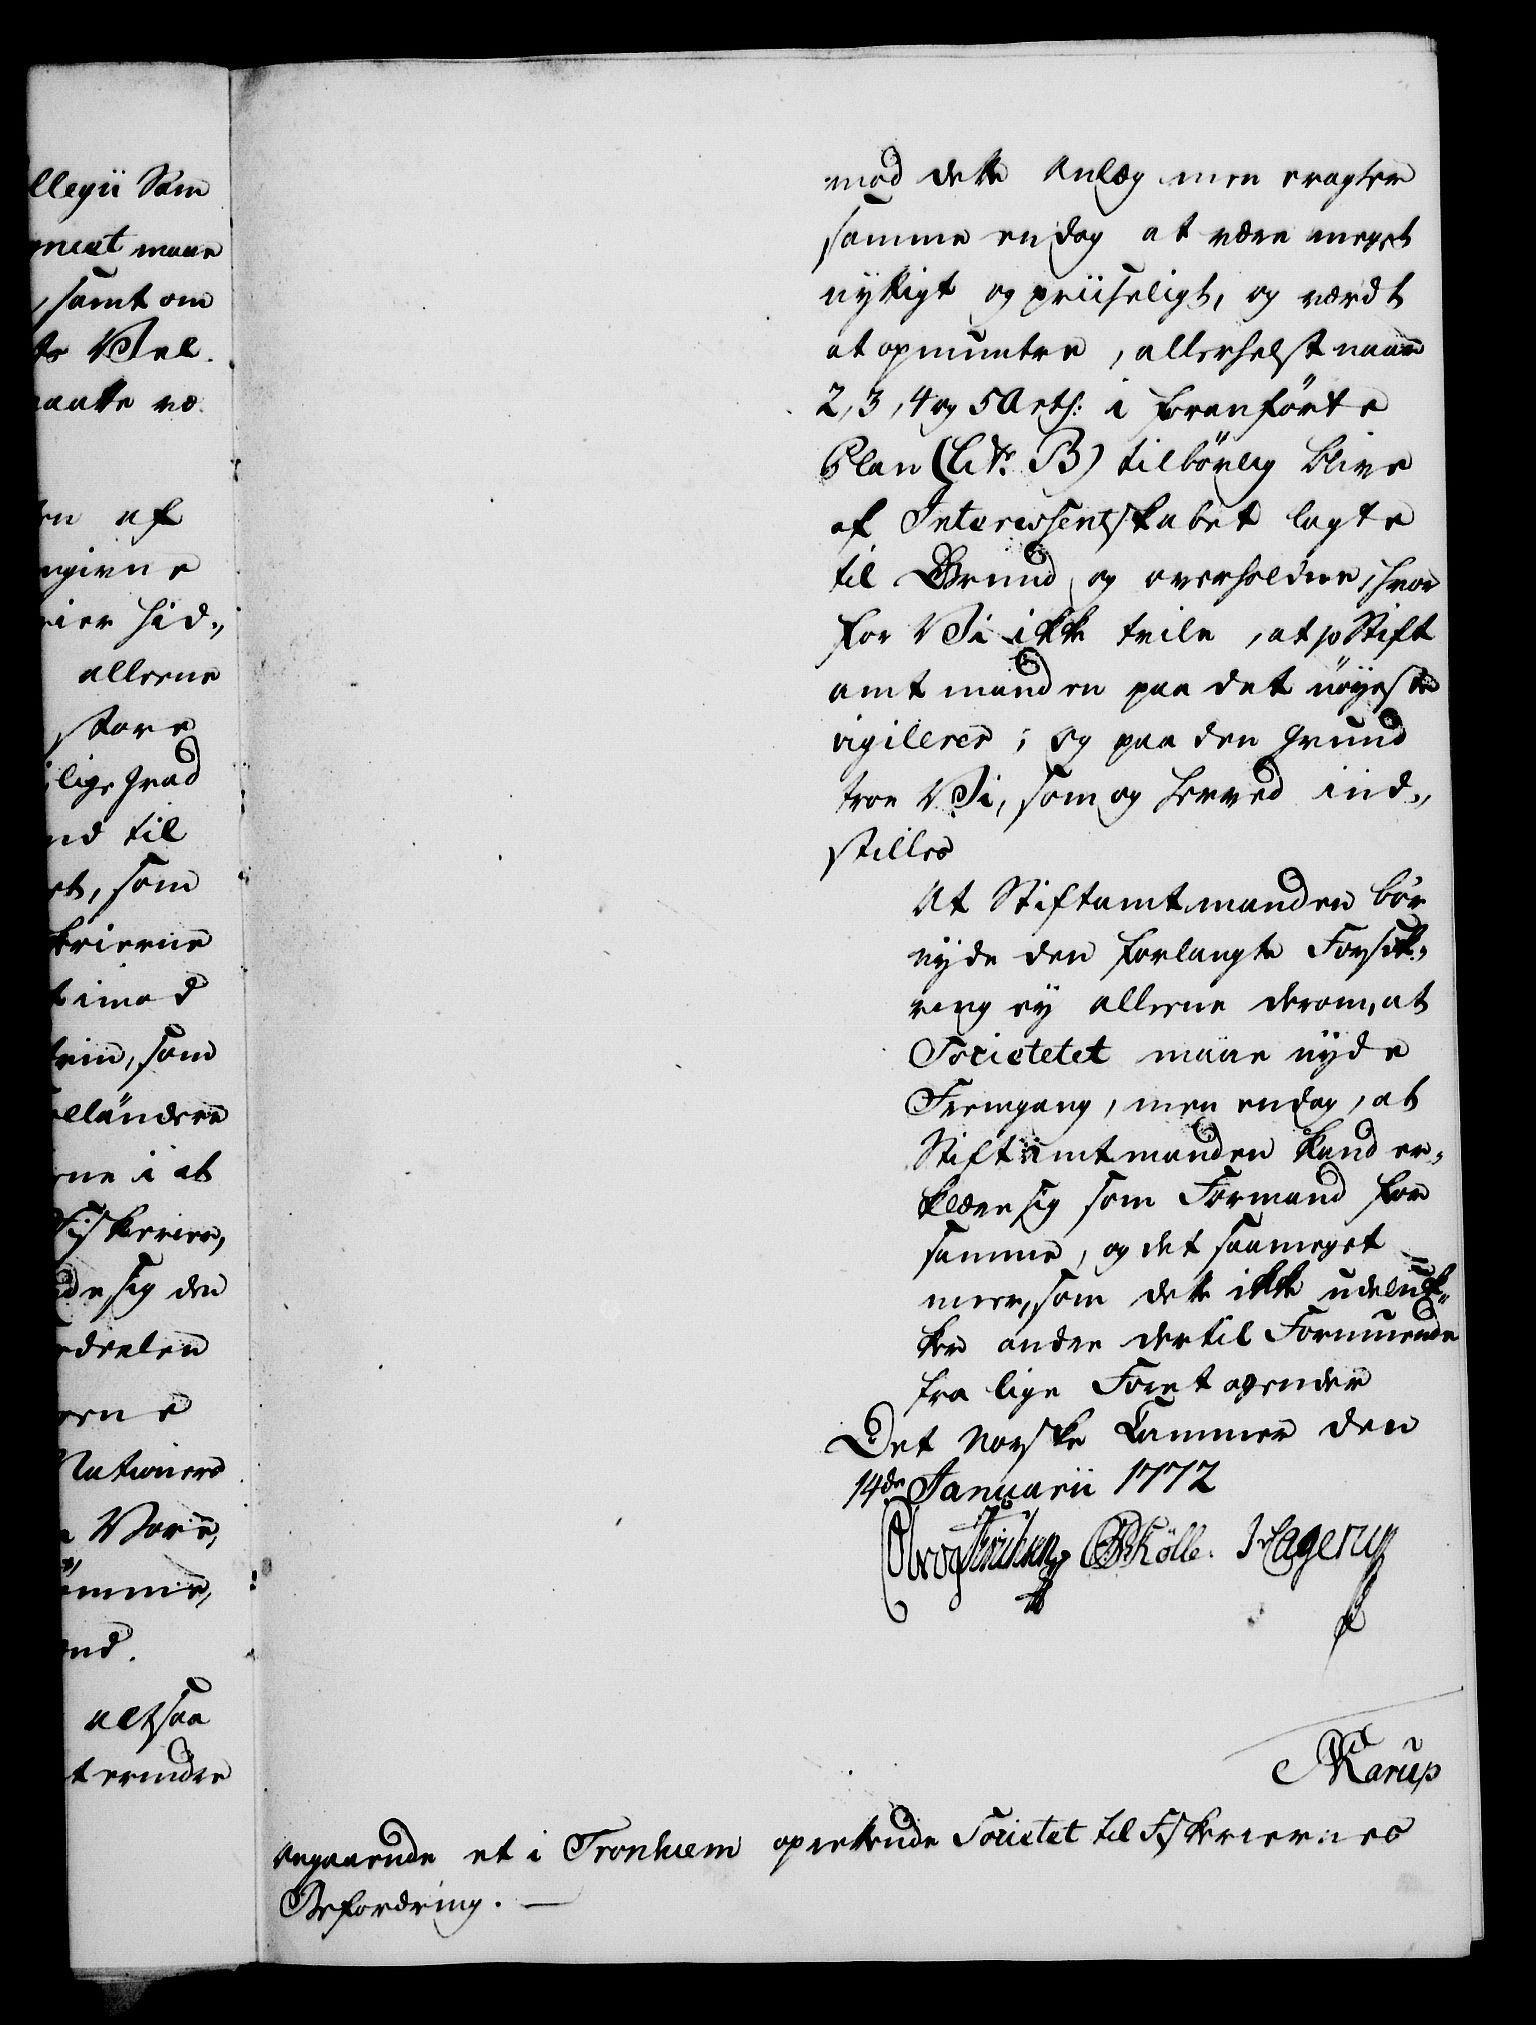 llegii Sam
maae
, samt om
Vel.
maatte væ.
af
ngivne
rier hid„
alleene
store
lige Grad
nd til
et, som
kerierne
timod
trin, som
olländere
ne i at
Fiskerier,
de sig den
rdeelen
erne
Nationers
Vore,
omme,
end.
altsaa
t erindre
mod dette Anlæg men eragter
samme endog at være meget
nyttigt og priiseligt, og værdt
at opmuntre, allerhelst naar
2, 3, 4 og 5 Arth: i foranførte
Plan (Litr. B) tilbørlig blive
af Interessentskabet lagte
til Grund og overholdne, hvor
for Vi ikke tvile, at jo Stift
amtmanden paa det nøyeste
vigilerer; og paa den Grund
troe Vi, som og herved ind„
stilles
At Stiftamtmanden bør
nyde den forlangte Forsik„
ring ey alleene derom, at
Societetet maae nyde
Fremgang, men endog, at
Stiftamtmanden kand er„
klære sig som Formand for
samme, og det saameget
meer, som dette ikke udeluk„
ker andre dertil Formuende
fra lige Foretagender
Det Norske Kammer den
14de Januarii 1772
Kølle. Hagerup
Karup
Angaaende et i Tronhiem oprettende Societet til Fiskeriernes
Befordring. —